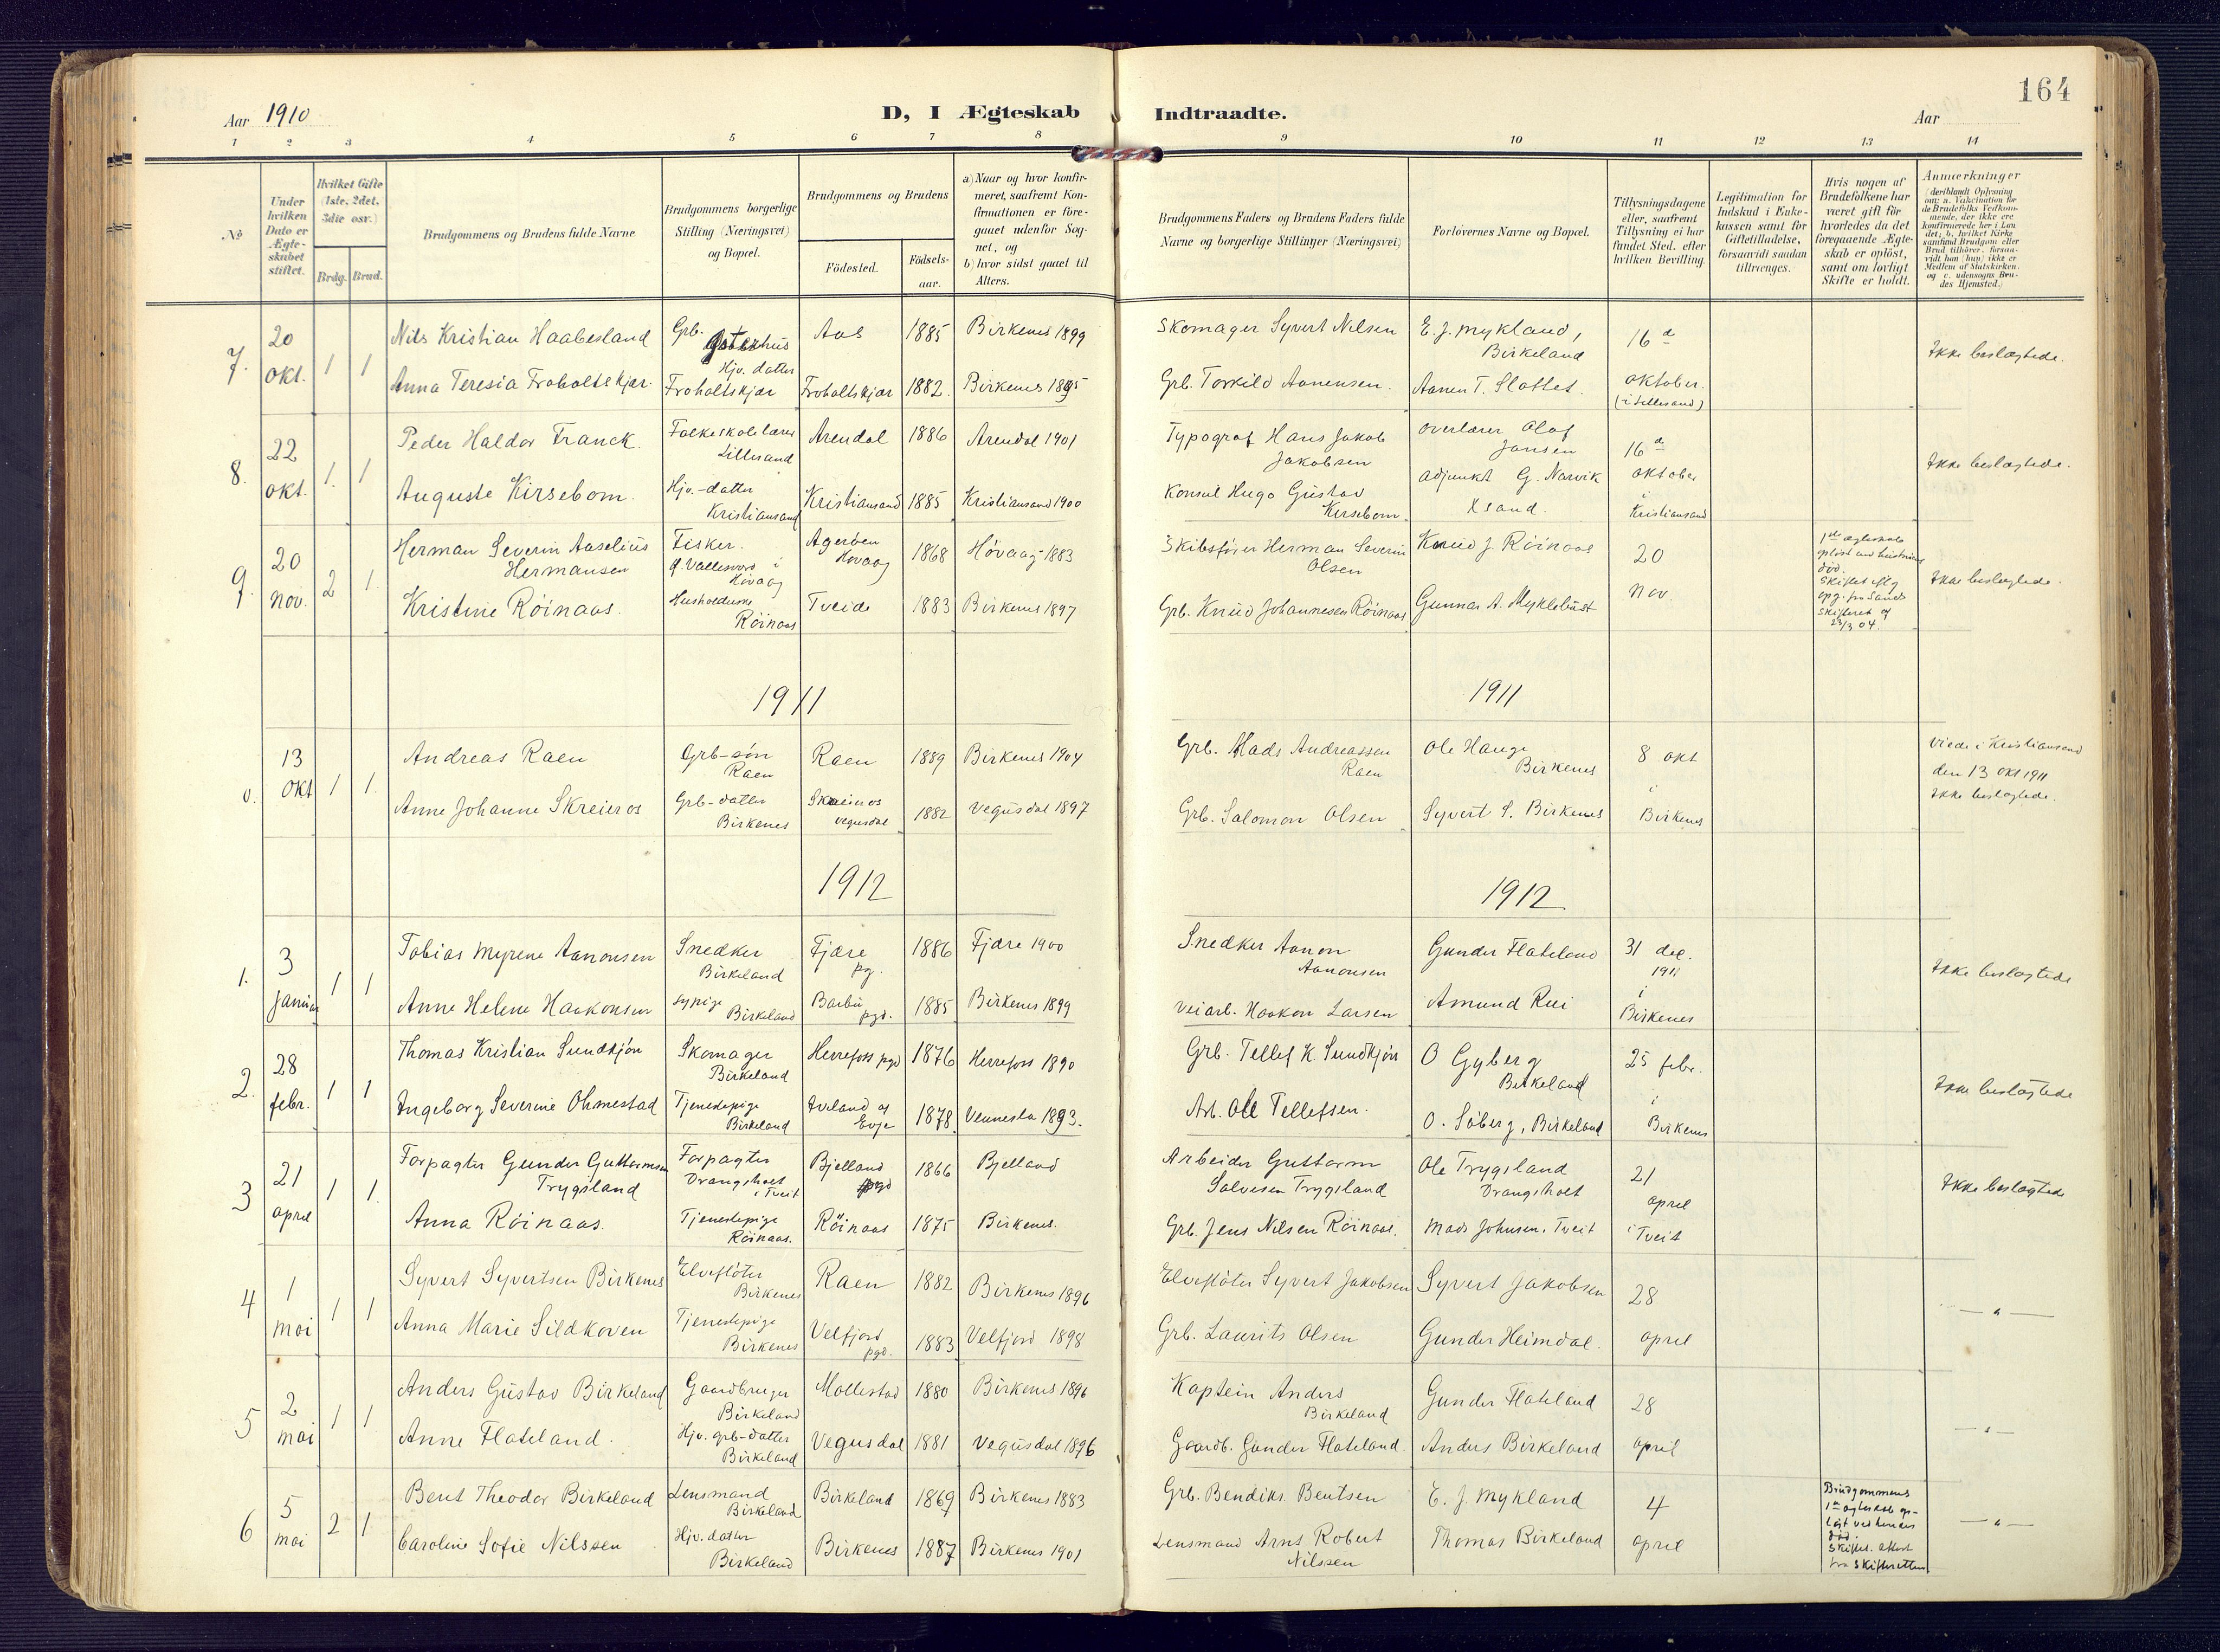 164
Aar 1910
D, I Ægteskab Indtraadte.
Aar
1 2 3 4 5 6 7 8 9 10 11 12 13 14
№
Under hvilken Dato er Ægte-skabet stiftet.
Hvilket Gifte (1ste, 2det, 3die osv.)
Brdg. Brud.
Brudgommens og Brudens fulde Navne
Brudgommens borgerlige Stilling (Næringsvei) og Bopæl.
Brudgommens og Brudens
Fødested.
Fødsels-aar.
a) Naar og hvor konfir-meret, saafremt Kon-firmationen er fore-gaaet udenfor Sog-net, og
b) hvor sidst gaaet til Alters.
Brudgommens Faders og Brudens Faders fulde Navne og borgerlige Stillinger (Næringsvei)
Forlovernes Navne og Bopæl.
Tillysningsdagene eller, saafremt Tillysning ei har fundet Sted, efter hvilken Bevilling.
Legitimation for Indskud i Enke-kassen samt for Giftetilladelse, forsaavidt saadan tiltrænges.
Hvis nogen af Brudefolkene har været gift før hvorledes da det foregaaende Ægte-skab er opløst, samt om lovligt Skifte er holdt.
Anmærkninger
(deriblandt Oplysning om: a. Vakcination for de Brudefolks Vedkom-mende, der ikke ere konfirmerede her i Lan det; b. hvilket Kirke samfund Brudgom eller Brud tilhører, forsaa-vidt han (hun) ikke er Medlem af Statskirken. og c. udensogns Bru-des Hjemsted.)
7. 20 okt. 1 1
Nils Kristian Haabesland Grb. Aas 1885 Birkenes 1899 Skomager Syvert Nilsen E. J. Mykland, Birkeland 16de
Anna Teresia Froholtskjær. Hjv. datter Froholtskjær Froholtskjær 1882. Birkenes 1895 Grb. Torkild Aanensen. Aanen T. Slottet. oktober. (i Lillesand)
Ikke beslægtede.
8. 22 okt. 1. 1
Peder Haldor Franck. Folkeskolelærer Lillesand Arendal 1886 Arendal 1901 Typograf Hans Jakob Jakobsen Overlærer Olaf Jansen 16de
Auguste Kirsebom. Hjv.-datter Kristiansand Kristiansand 1885 Kristiansand 1900 Konsul Hugo Gustav Kirsebom. Adjunkt G. Narvik Xsand. oktober i Kristiansand
Ikke beslægtede.
9. 20 nov. 2 1.
Herman Severin Aaselius Hermansen Fisker. Vallesverd i Høvaag Agerøen Høvaag 1868 Høvaag 1883 Skibsfører Herman Severin Olsen Knud J. Röinaas 20
Kristine Röinaas. Husholderske Röinaas Tveide 1883 Birkenes 1897 Grb. Knud Johannesen Röinaas Gunnar A. Myklebust nov.
1ste ægteskab opløst ved hustruens død. Skiftet iflg opg. fra Sands skifteret af 23/3 04.
Ikke beslægtede.
1911 1911
0. 13 okt 1 1.
Andreas Raen Grb-søn Raen Raen 1889 Birkenes 1904 Grb. Mads Andreassen Raen Ole Hauge Birkenes 8 okt
Anne Johanne Skreieros Grb-datter Birkenes Skreieros Vegusdal 1882 Vegusdal 1897 Grb. Salomon Olsen Syvert S. Birkenes i Birkenes
Viede i Kristiansand den 13 okt 1911 Ikke beslægtede.
1912 1912
1. 3 januar 1 1
Tobias Myrene Aanonsen Snedker Birkeland Fjære pg. 1886 Fjære 1900 Snedker Aanon Aanonsen Gunder Flateland 31 dec. 1911
Anne Helene Haakonsen Sypige Birkeland Barbu pgd. 1885 Birkenes 1899 Veiarb. Haakon Larsen Amund Rui i Birkenes
Ikke beslægtede
2. 28 febr. 1 1
Thomas Kristian Sundtjön Skomager Birkeland Herrefoss pgd 1876 Herrefoss 1890 Grb. Tellef K. Sundtjön O Gyberg Birkeland 25 febr.
Ingeborg Severine Ohmestad Tjenestepige Birkeland Iveland og Evje 1878. Vennesla 1893. Arb. Ole Tellefsen. O. Söberg, Birkeland i Birkenes
Ikke beslægtede
3 21 april 1 1.
Forpagter Gunder Guttormsen Trygsland Forpagter Drangsholt i Tveit Bjelland pgd 1866 Bjelland Arbeider Guttorm Salvesen Trygsland Ole Trygsland Drangsholt 21
Anna Röinaas. Tjenestepige Röinaas. Röinaas 1875 Birkenes. Grb. Jens Nilsen Röinaas. Mads Johnsen, Tveit april i Tveit
Ikke beslægtede
4 1 mai 1 1
Syvert Syvertsen Birkenes Elvefløter Birkenes Raen 1882 Birkenes 1896 Elvefløter Syvert Jakobsen Syvert Jakobsen 28
Anna Marie Sildkoven Tjenestepige Birkenes Velfjord pgd. 1883 Velfjord 1898 Grb. Laurits Olsen Gunder Heimdal. april
— " —
5 2 mai 1 1
Anders Gustav Birkeland Gaardbruger Birkeland Mollestad 1880 Birkenes 1896 Kaptein Anders Birkeland Gunder Flateland 28
Anne Flateland. Hjv. grb-datter Birkeland Vegusdal 1881 Vegusdal 1896 Gaardb. Gunder Flateland. Anders Birkeland april
— " —
6 5 mai 2 1
Bent Theodor Birkeland Lensmand Birkeland Birkeland 1869 Birkenes 1883 Grb. Bendiks Bentsen E. J. Mykland 4
Caroline Sofie Nilssen Hjv. datter Birkeland Birkenes 1887 Birkenes 1901 Lensmand Arnt Robert Nilssen Thomas Birkeland april
Brudgommens 1ste ægteskab op-løst ved hendes død. Skiftet. attest fra skifteretten
— " —